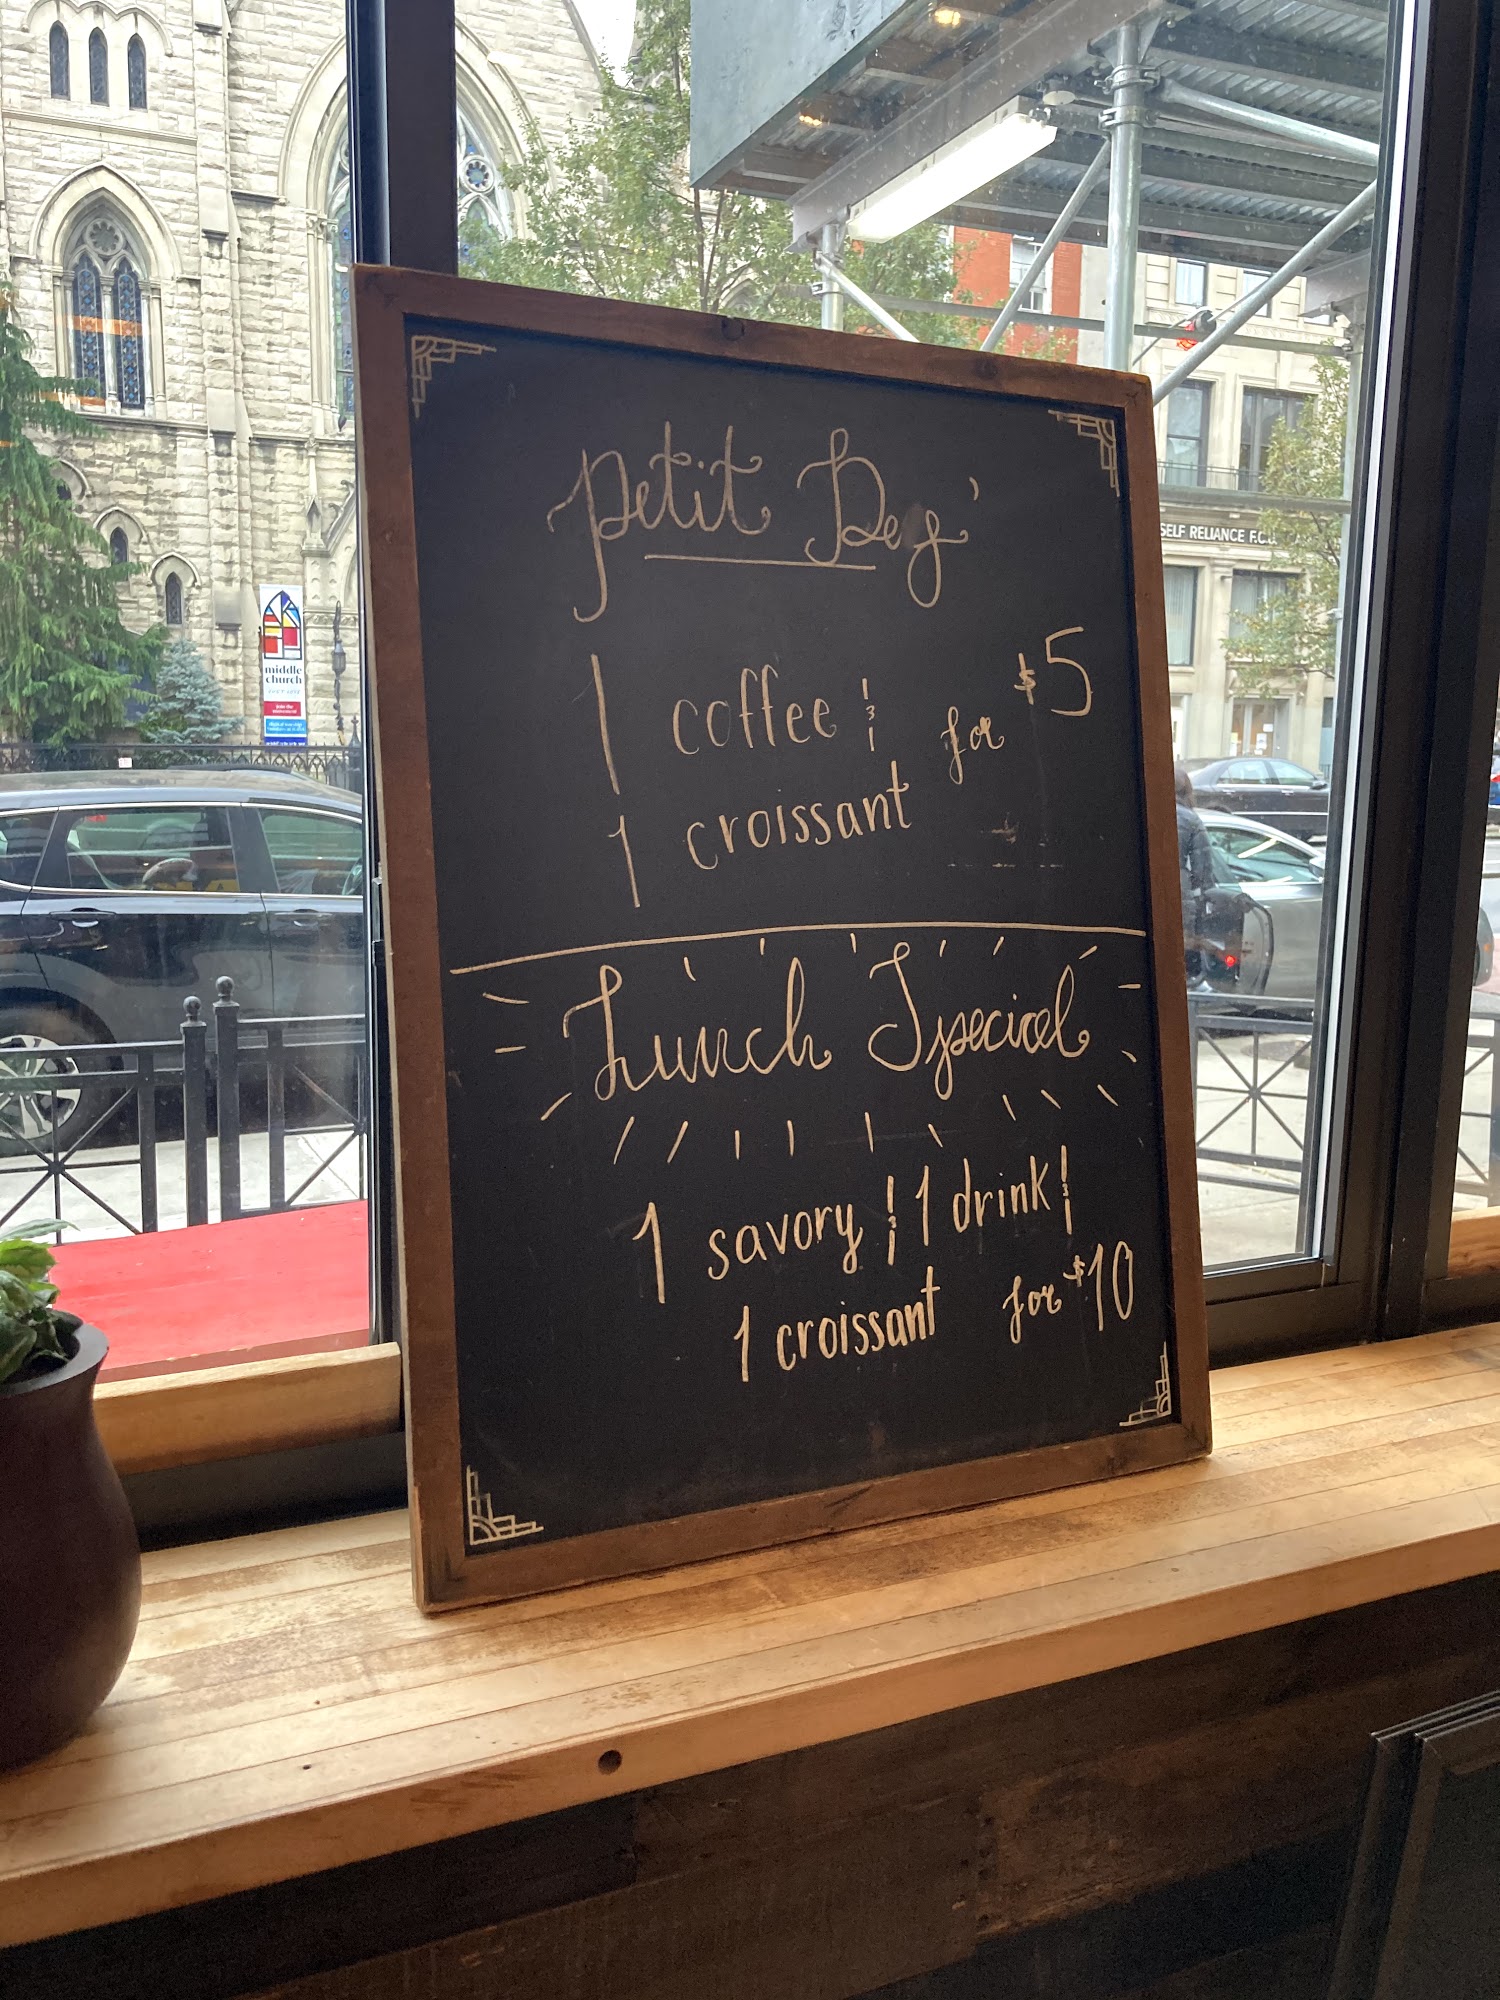 Petit Dej'
1 coffee &
for $5
1 croissant
Lunch Special
1 savory & 1 drink &
1 croissant for $10
middle
church
SELF RELIANCE F.C.U.